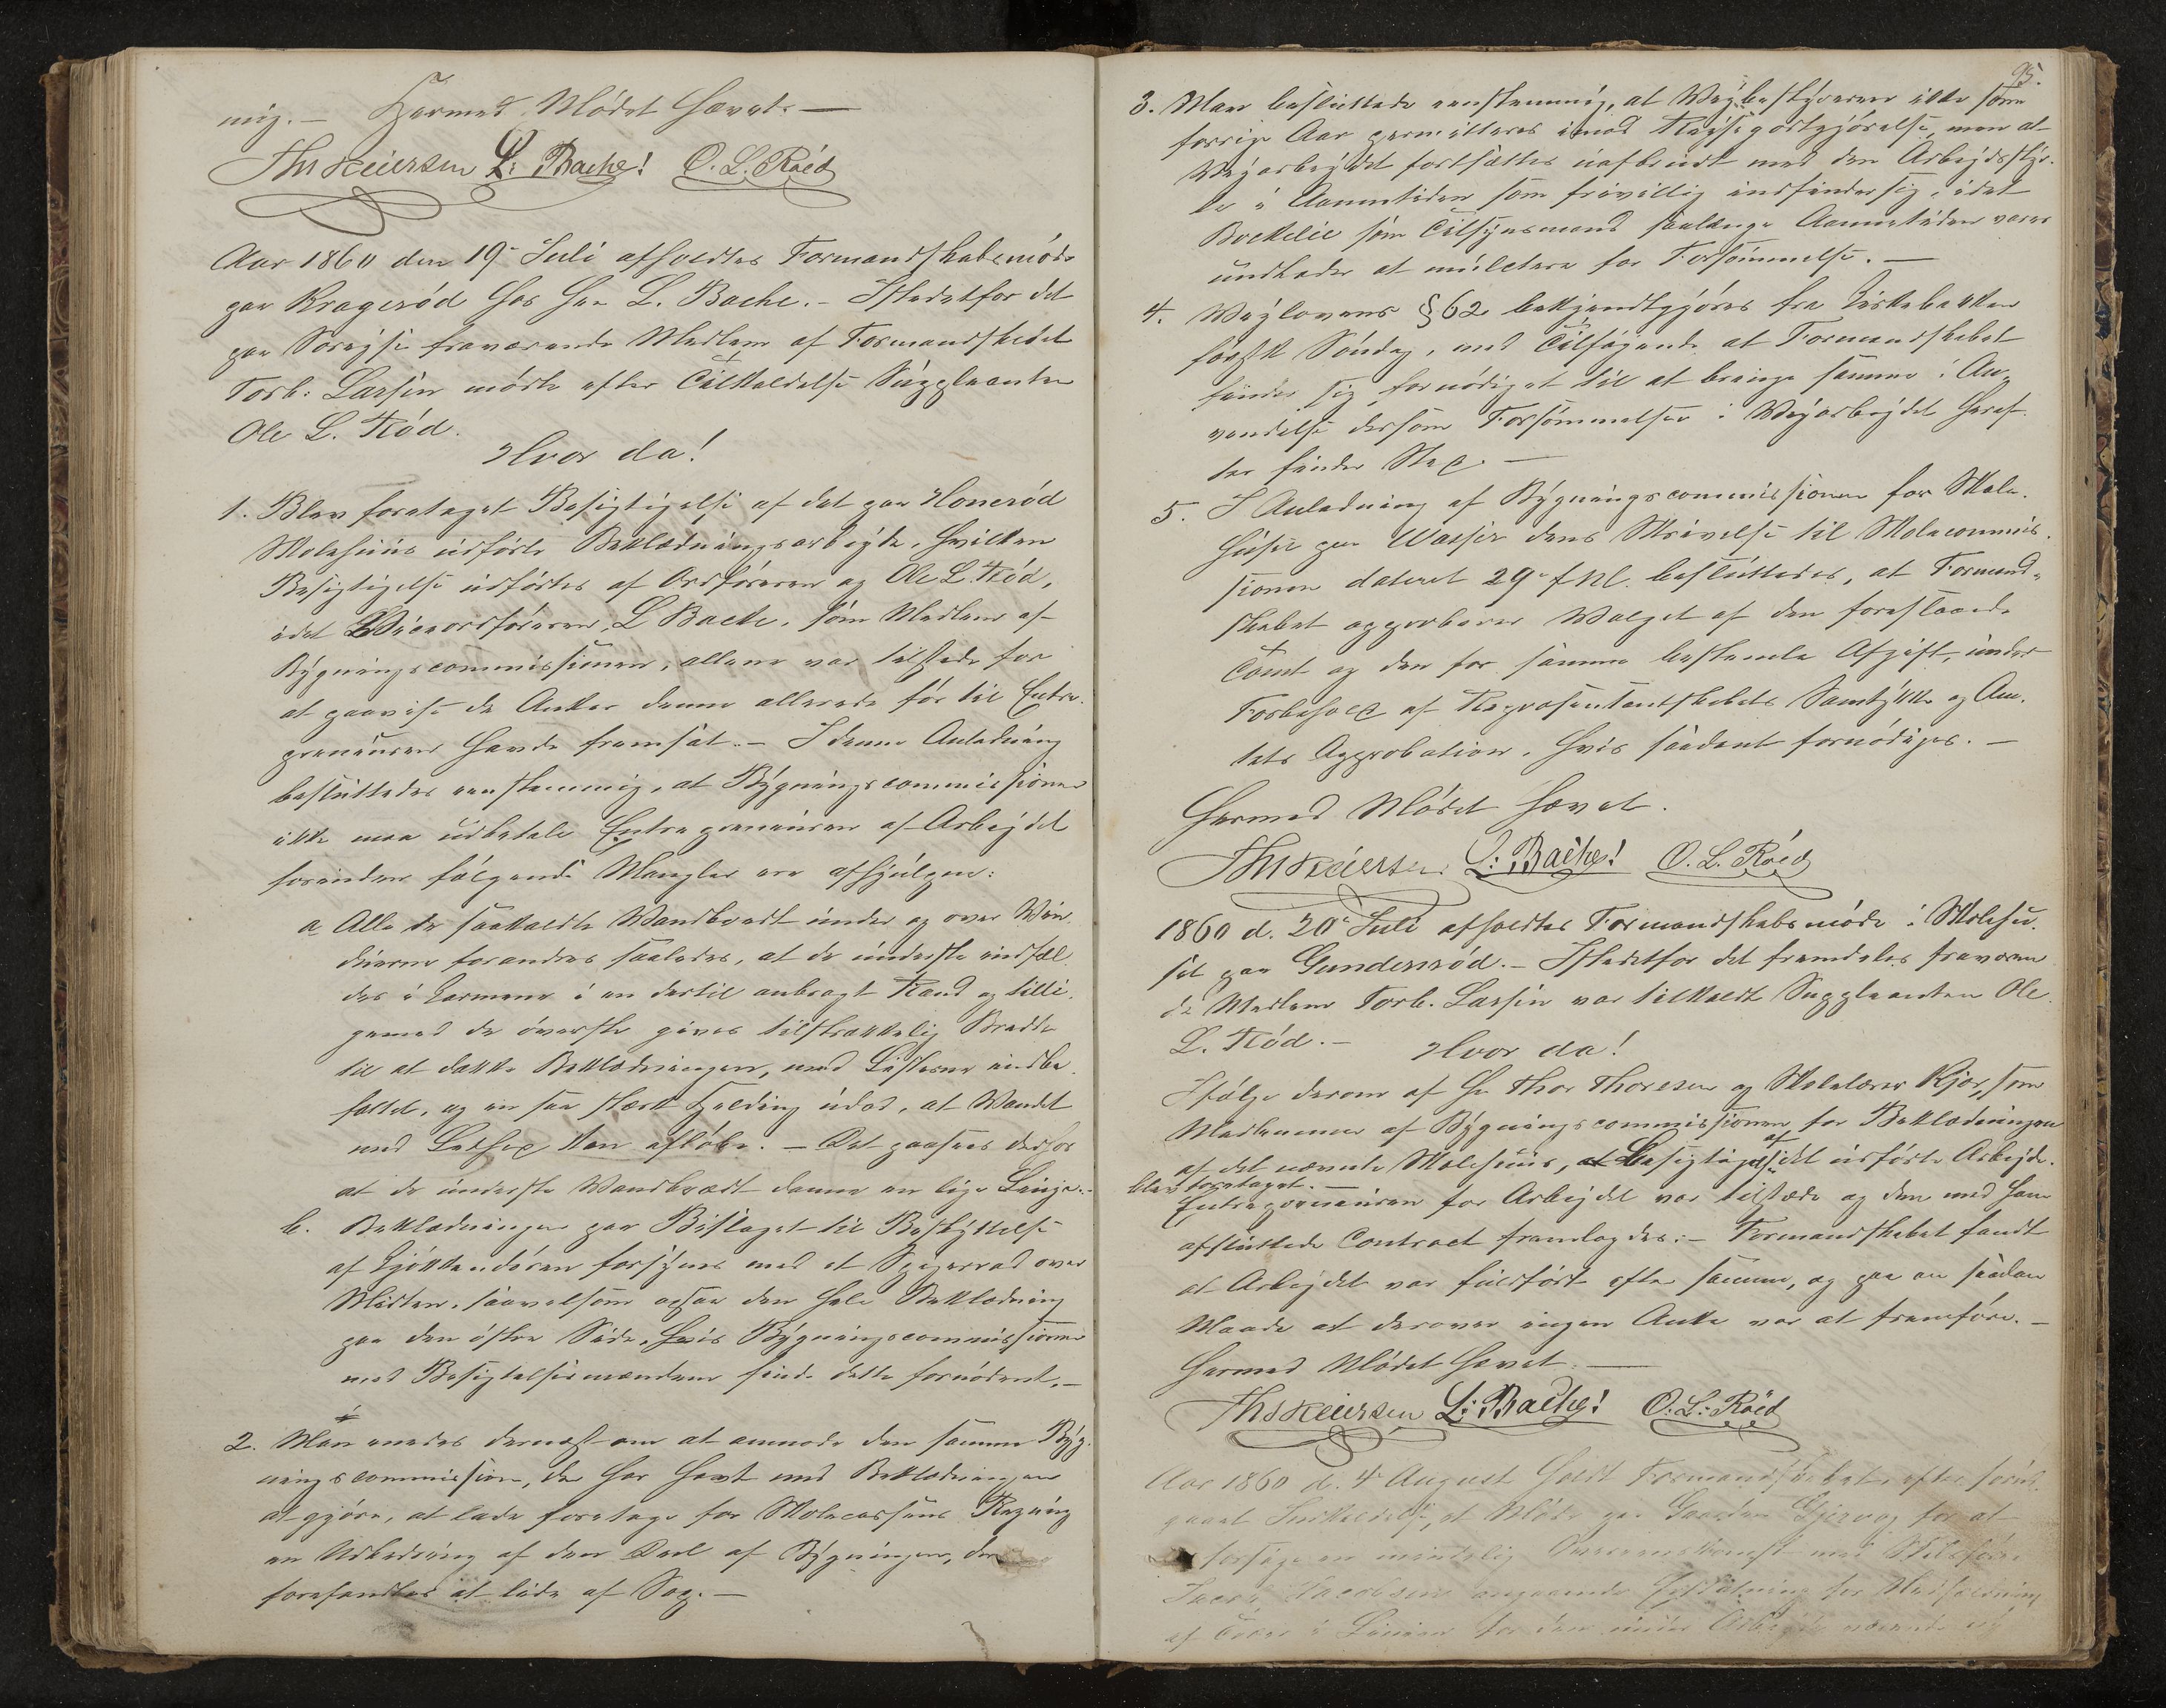 nig. — Hermed Mödet hævet. —
Ths Reiersen L. Bache! O. L. Röed
Aar 1860 den 19de Juli afholdtes Formandskabsmöde
paa Krageröd hos Hr L. Bache. – Istedetfor det
paa Söreise fraværende Medlem af Formandskabet
Torb: Larsen mödte efter Tilkaldelse Suppleanten
Ole L. Röd.
Hvor da!
1. Blev foretaget Besigtigelse af det paa Honeröd
Skolehuus udförte Beklædningsarbeide, hvilken
Besigtigelse udförtes af Ordföreren og Ole L. Röd,
idet Viceordföreren, L Bache, som Medlem af
Bygningscommissionen, allene var tilstede for
at paavise de Anker denne allerede før til Entre-
preneuren havde fremsat. – I denne Anledning
besluttedes eenstemmig, at Bygningscommissionen
ikke maa udbetale Entrepreneuren af Arbeidet
forinden fölgende Mangler ere afhjulpne:
a Alle de saakaldte Vandbredt under og over Vin-
duerne forandres saaledes, at de underste indfæl-
des i Karmene i en dertil anbragt Rand og tilli-
gemed de överste gives tilstrækkelig Bredde
til at dække Beklædningen, med Listerne indbe-
fattet, og en saa stærk Helding udad, at Vandet
med Lethed kan aflöbe. – Det paasees derhos
at de underste Vandbrædt danne en lige Linje. –
b. Beklædningen paa Bislaget til Beskyttelse
af Kjökkendören forsynes med et Spigerrad over
Midten, saavelsom ogsaa den hele Beklædning
paa den östre Side, hvis Bygningscommissionen
med Besigtelsesmændene finde dette fornödent. –
2. Man enedes dernæst om at anmode den samme Byg-
ningscommission, der har havt med Beklædningen
at gjöre, at lade foretage for Skolecassens Regning
en Udbedring af den Deel af Bygningen, der
forefandtes at lide af Sop. —
95.
3. Man besluttede eenstemmig, at Veibestyreren ikke som
forrige Aar permitteres imod Reisegodtgjörelse, men at
Veiarbeidet fortsættes uafbrudt med den Arbeidsstyr-
ke i Aannetiden som frivillig indfinder sig, idet
Brekelie som Tilsynsmand saalænge Aannetiden varer
undlader at mulctere for Forsömmelse. —
4. Veilovens § 62 bekjendtgjöres fra Kirkebakken
förstk Söndag, med Tilföiende at Formandskabet
finder sig fornödiget til at bringe samme i An-
vendelse dersom Forsömmelser i Veiarbeidet heref-
ter finder Sted. —
5. I Anledning af Bygningscommissionen for Skole-
huset paa Vaaser dens Skrivelse til Skolecommis-
sionen dateret 29de f. M. besluttedes, at Formand-
skabet approberer Valget af den foreslaaede
Tomt og den for samme bestemte Afgift, under
Forbehold af Repræsentantskabets Samtykke og Am-
tets Approbation, hvis saadant fornödiges. —
Hermed Mödet hævet.
Ths Reiersen L: Bache! O. L. Röed
1860 d. 20de Juli afholdtes Formandskabsmöde i Skolehu-
set paa Gunderröd. – Istedetfor det fremdeles fraværen
de Medlem Torb. Larsen var tilkaldt Suppleanten Ole
L. Röd. – Hvor da!
Ifölge derom af Hr Thor Thoresen og Skolelærer Kjær, som
Medlemmer af Bygningscommissionen for Beklædningen
af det nævnte Skolehuus, at Besigtigelse af det udförte Arbeide
blev foretaget. —
Entrepreneuren for Arbeidet var tilstede og den med ham
afsluttede Contract fremlagdes. – Formandskabet fandt
at Arbeidet var fuldfört efter samme, og paa en saadan
Maade at derover ingen Anke var at fremföre. —
Hermed Mödet hævet. —
Ths Reiersen L: Bache! O. L: Röed
Aar 1860 d. 4de August holdt Formandskabet, efter forud-
gaaet Indkaldelse, et Möde paa Gaarden Gjervog for at
forsöge en mindelig Overeenskomst med
Jacob Jacobsen angaaende Erstatning for
af i Linien for den under Arbeide værende